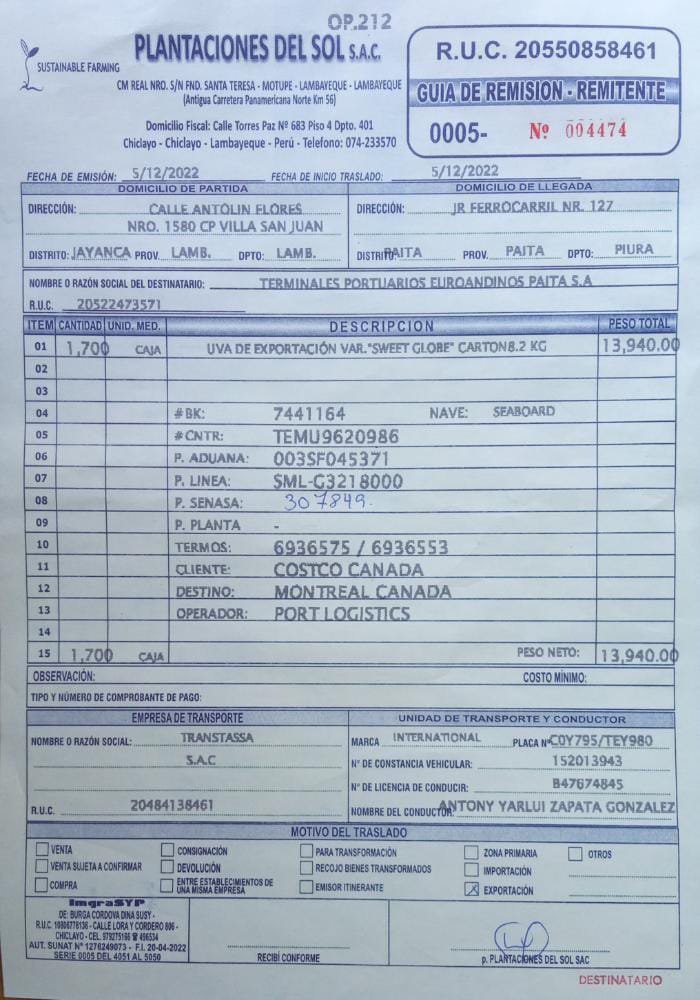 OP.212
SUSTAINABLE FARMING
PLANTACIONES DEL SOL S.A.C.
CM REAL NRO. S/N FND. SANTA TERESA - MOTUPE - LAMBAYEQUE - LAMBAYEQUE
(Antigua Carretera Panamericana Norte Km 56)
Domicilio Fiscal: Calle Torres Paz Nº 683 Piso 4 Dpto. 401
Chiclayo - Chiclayo - Lambayeque - Perú - Telefono: 074-233570
R.U.C. 20550858461
GUIA DE REMISION - REMITENTE
0005- Nº 004474
FECHA DE EMISIÓN: 5/12/2022 FECHA DE INICIO TRASLADO: 5/12/2022
DOMICILIO DE PARTIDA DOMICILIO DE LLEGADA
DIRECCIÓN: CALLE ANTOLIN FLORES DIRECCIÓN: JR FERROCARRIL NR. 127
NRO. 1580 CP VILLA SAN JUAN
DISTRITO: JAYANCA PROV. LAMB. DPTO: LAMB. DISTRITO PAITA PROV. PAITA DPTO: PIURA
NOMBRE O RAZÓN SOCIAL DEL DESTINATARIO: TERMINALES PORTUARIOS EUROANDINOS PAITA S.A
R.U.C. 20522473571
ITEM CANTIDAD UNID. MED. DESCRIPCION PESO TOTAL
01 1,700 CAJA UVA DE EXPORTACIÓN VAR."SWEET GLOBE" CARTON 8.2 KG 13,940.00
02
03
04 #BK: 7441164 NAVE: SEABOARD
05 #CNTR: TEMU9620986
06 P. ADUANA: 003SF045371
07 P. LINEA: SML-G3218000
08 P. SENASA: 307849.
09 P. PLANTA -
10 TERMOS: 6936575 / 6936553
11 CLIENTE: COSTCO CANADA
12 DESTINO: MONTREAL CANADA
13 OPERADOR: PORT LOGISTICS
14
15 1,700 CAJA PESO NETO: 13,940.00
OBSERVACIÓN: COSTO MÍNIMO:
TIPO Y NÚMERO DE COMPROBANTE DE PAGO:
EMPRESA DE TRANSPORTE UNIDAD DE TRANSPORTE Y CONDUCTOR
NOMBRE O RAZÓN SOCIAL: TRANSTASSA MARCA INTERNATIONAL PLACA Nº C0Y795/TEY980
S.A.C Nº DE CONSTANCIA VEHICULAR: 152013943
Nº DE LICENCIA DE CONDUCIR: B47674845
R.U.C. 20484138461 NOMBRE DEL CONDUCTOR: ANTONY YARLUI ZAPATA GONZALEZ
MOTIVO DEL TRASLADO
VENTA CONSIGNACIÓN PARA TRANSFORMACIÓN ZONA PRIMARIA OTROS
VENTA SUJETA A CONFIRMAR DEVOLUCIÓN RECOJO BIENES TRANSFORMADOS IMPORTACIÓN
COMPRA ENTRE ESTABLECIMIENTOS DE UNA MISMA EMPRESA EMISOR ITINERANTE X EXPORTACIÓN
ImgraSYP
DE: BURGA CORDOVA DINA SUSY -
R.U.C. 16806778136 - CALLE LORA Y CORDERO 806 -
CHICLAYO - CEL. 979275166 ☎ 496534
AUT. SUNAT Nº 1276249073 - F.I. 20-04-2022
SERIE 0005 DEL 4051 AL 5050
RECIBÍ CONFORME p. PLANTACIONES DEL SOL SAC
DESTINATARIO